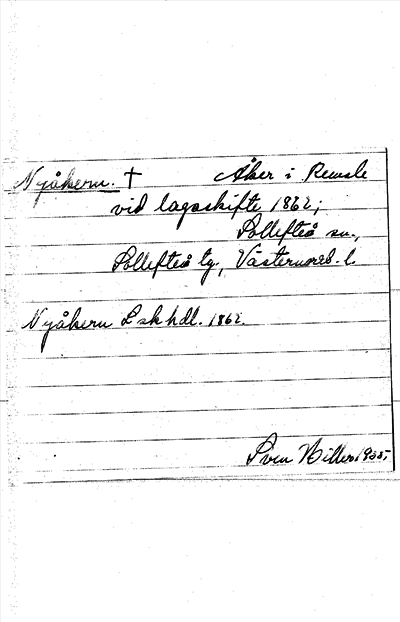 Nyåkern. † Åker i Remsle
vid lagaskifte 1862;
Sollefteå sn.,
Sollefteå tg, Västernorrl. l.
Nyåkern L sk hdl. 1862.
Sven